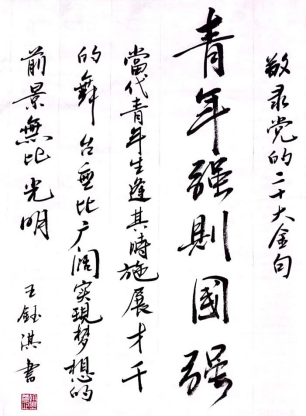 敬录党的二十大金句
青年强則國强
當代青年生逢其時施展才干
的舞台無比广阔实現梦想的
前景無比光明
王钰淇書